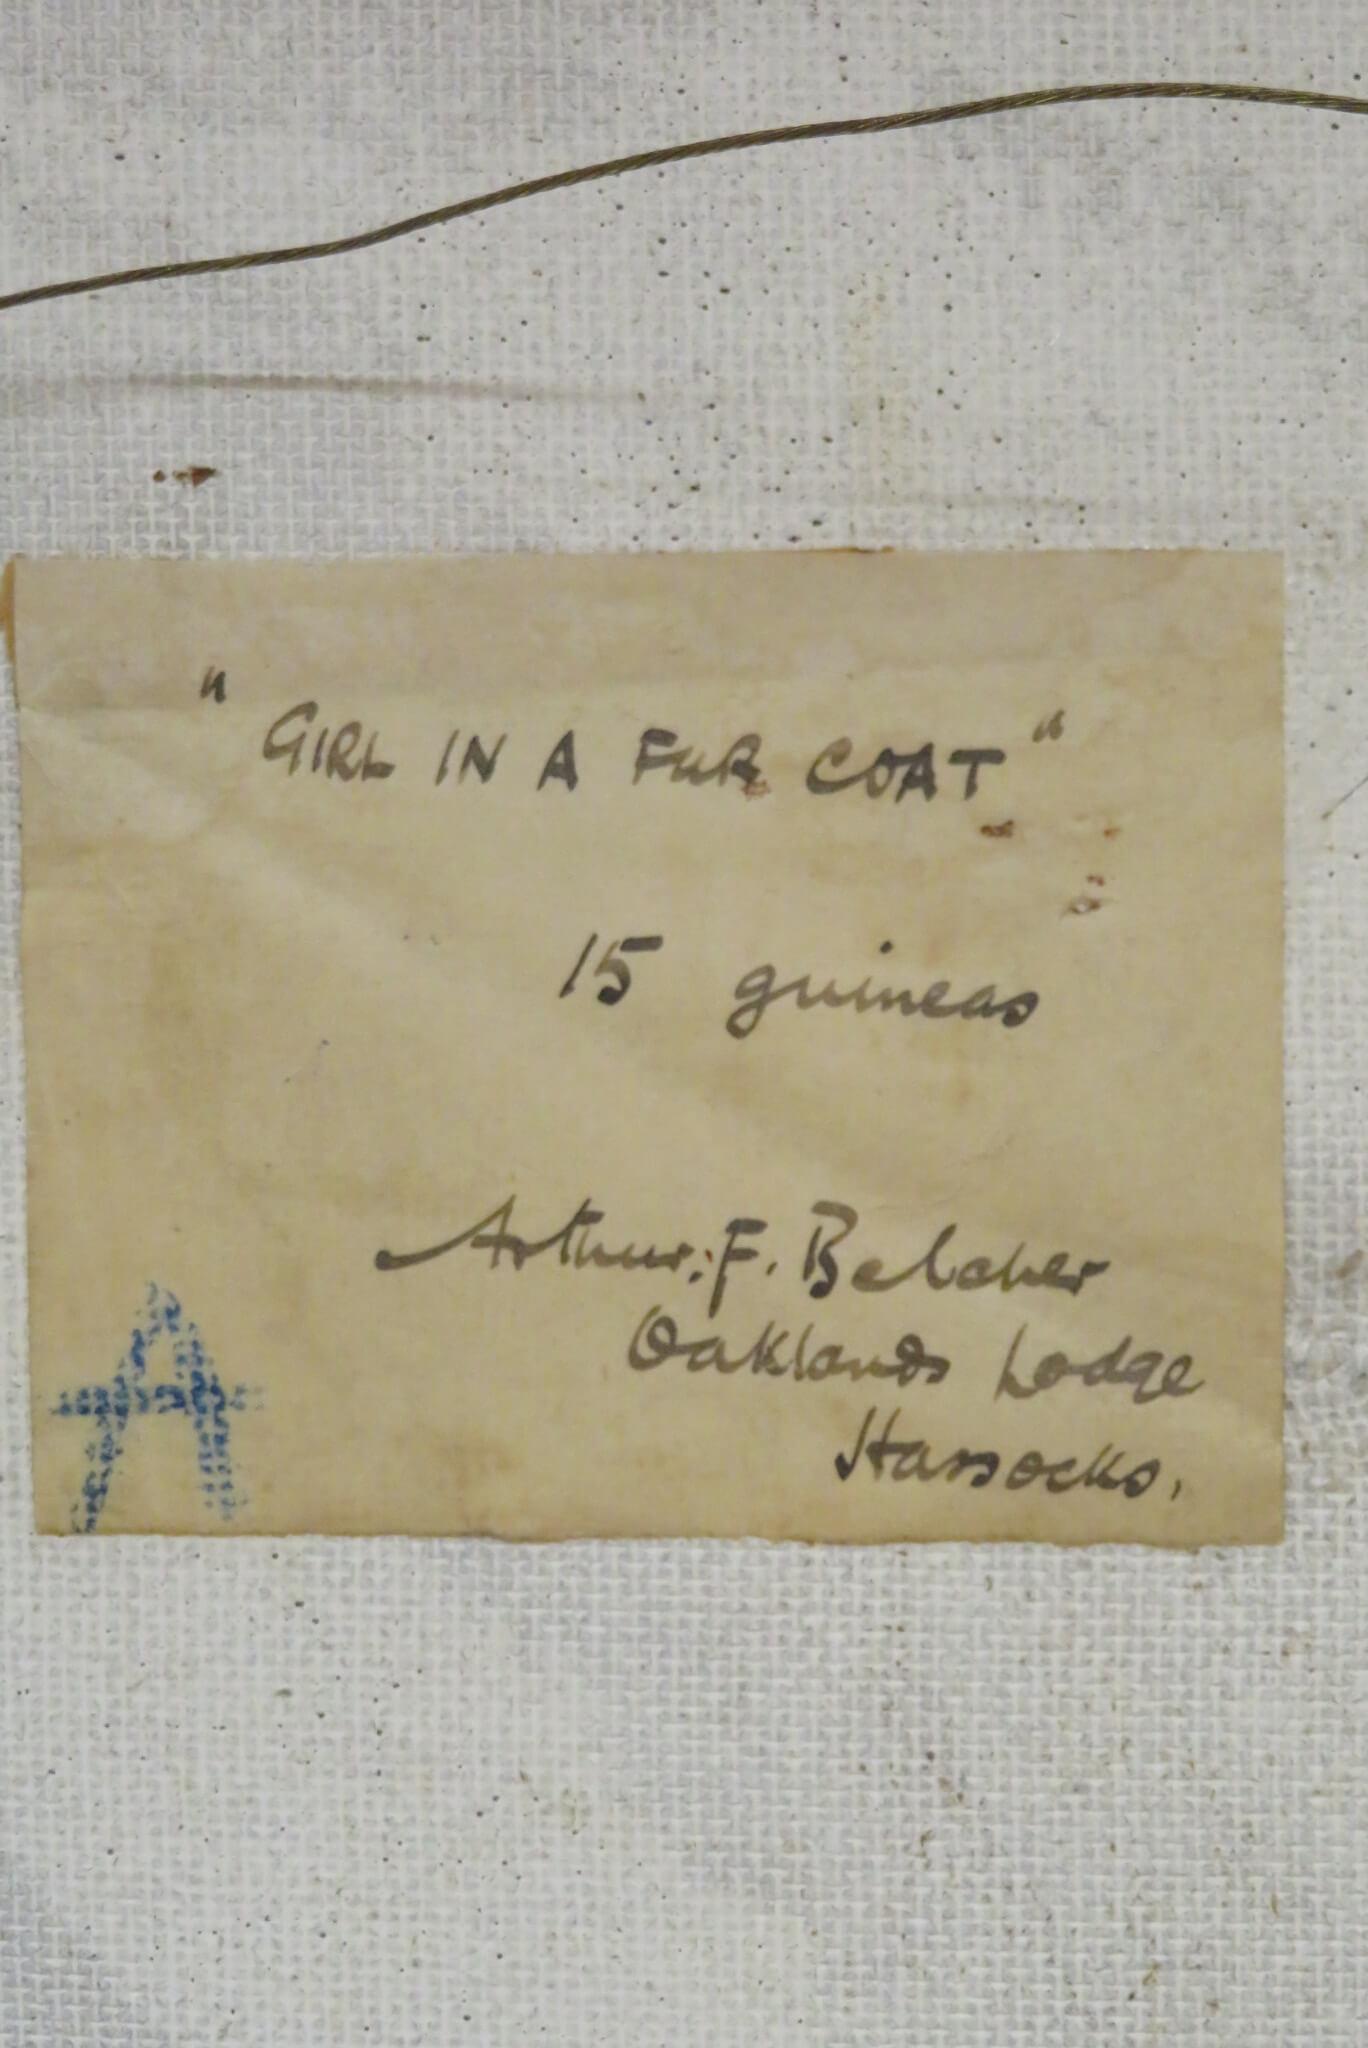 "GIRL IN A FUR COAT"
15 guineas
Arthur. F. Belcher
Oaklands Lodge
Hassocks.
A